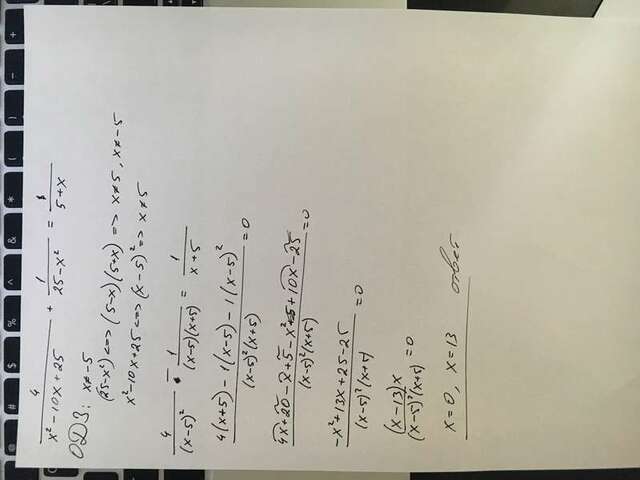 4/(x²-10x+25) + 1/(25-x²) = 1/(5+x)
ОДЗ: x≠-5
(25-x²) <=> (5-x)(5+x) => x≠5, x≠-5
x²-10x+25 <=> (x-5)² => x≠5
4/(x-5)² - 1/((x-5)(x+5)) = 1/(x+5)
(4(x+5) - 1(x-5) - 1(x-5)²)/((x-5)²(x+5)) = 0
(4x+20-x+5-x²+10x-25)/((x-5)²(x+5)) = 0
(-x²+13x+25-25)/((x-5)²(x+5)) = 0
((x-13)x)/((x-5)²(x+5)) = 0
x=0, x=13 ответ